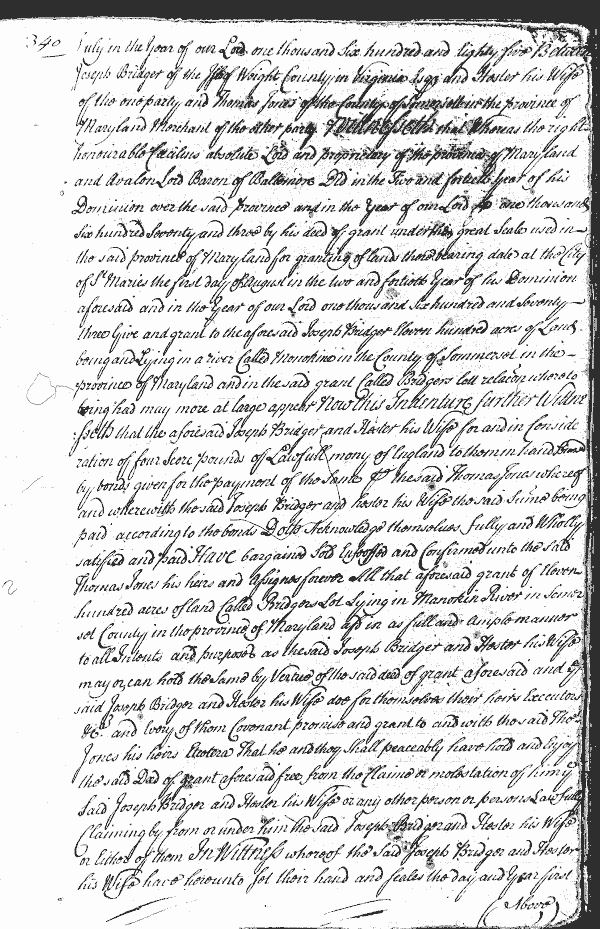 340
July in the Year of our Lord one thousand Six hundred and Eighty five Between
Joseph Bridger of the Isle of Weight County in Virginia Esqr. and Hester his Wife
of the one party and Thomas Jones of the County of Somersett in the province of
Maryland Merchant of the other party Wittnesseth that Whereas the right
honourable Cæcilius absolute Lord and proprietary of the province of Maryland
and Avalon Lord Baron of Baltimore Did in the Two and fortieth Year of his
Dominion over the said province and in the Year of our Lord one thousand
Six hundred Seventy and three by his deed of grant under the great Seale used in
the said province of Maryland for granting of lands there bearing date at the City
of St. Maries the first day of August in the two and fortieth Year of his Dominion
aforesaid and in the Year of our Lord one thousand Six hundred and Seventy
three Give and grant to the aforesaid Joseph Bridger Eleven hundred acres of Land
being and Lying in a river Called Monokine in the County of Sommerset in the
province of Maryland and in the said grant Called Bridgers lott relacon whereto
being had may more at large appear Now this Indenture further Wittne
sseth that the aforesaid Joseph Bridger and Hester his Wife for and in Conside
ration of four Score pounds of Lawfull mony of England to them in hand
by bonds given for the payment of the Same the said Thomas Jones whereof
and wherewith the said Joseph Bridger and Hester his Wife the said Sume being
paid according to the bonds Doth Acknowledge themselves fully and Wholly
satisfied and paid Have bargained Sold Enfeoffed and Confirmed unto the said
Thomas Jones his heirs and Assignes forever All that aforesaid grant of Eleven
hundred acres of land Called Bridgers Lot Lying in Manokin River in Somer
set County in the province of Maryland in as full and Ample manner
to all Intents and purposes as the said Joseph Bridger and Hester his Wife
may or can hold the Same by Vertue of the said deed of grant aforesaid and
said Joseph Bridger and Hester his Wife doe for themselves their heirs Executors
&c and Every of them Covenant promise and grant to and with the said Thos.
Jones his heirs Etcetera That he and they Shall peaceably have hold and Enjoy
the said Deed of grant aforesaid free from the Claime or molestation of him
Said Joseph Bridger and Hester his Wife or any other person or persons Lawfully
Claiming by from or under him the said Joseph Bridger and Hester his Wife
or Either of them In Wittness whereof the Said Joseph Bridger and Hester
his Wife have hereunto Set their hand and seales the day and Year first
Above